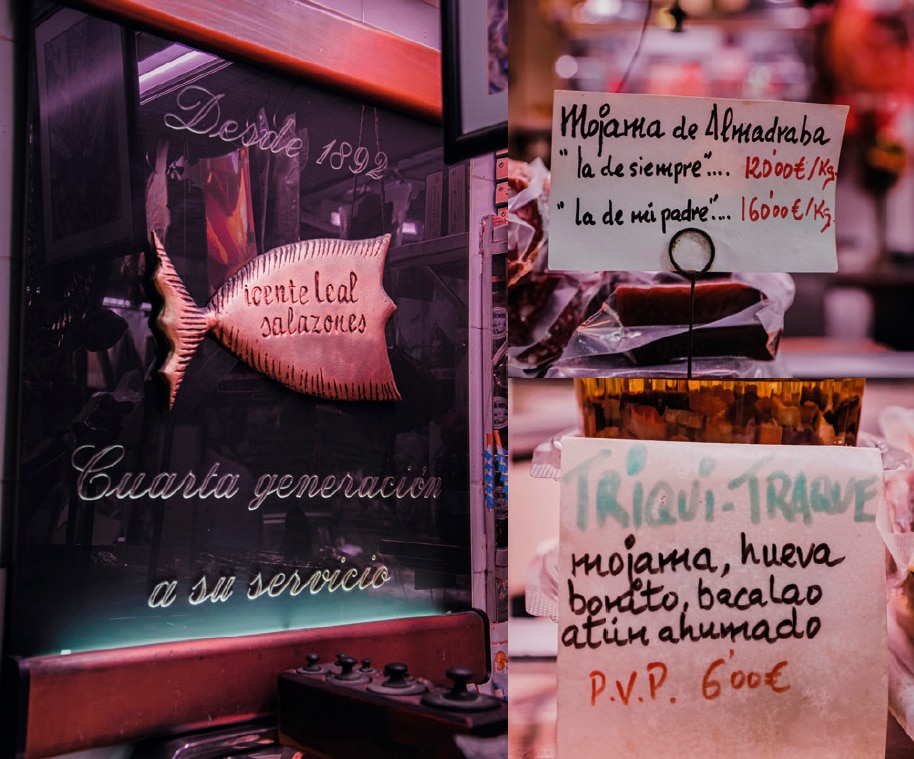 Desde 1892
icente Leal
salazones
Cuarta generación
a su servicio
Mojama de Almadraba
"la de siempre".... 120'00€/Kg.
"La de mi padre"... 160'00€/Kg.
TRIQUI-TRAQUE
mojama, hueva
bonito, bacalao
atún ahumado
P.V.P. 6'00€